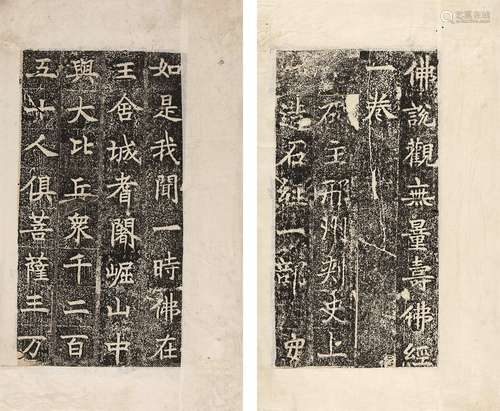 佛說觀無量壽佛經
一卷
砍主邢州刾史上
造石經一部
如是我聞一時佛在
王舍城耆闍崛山中
與大比丘衆千二百
五十人俱菩薩三万